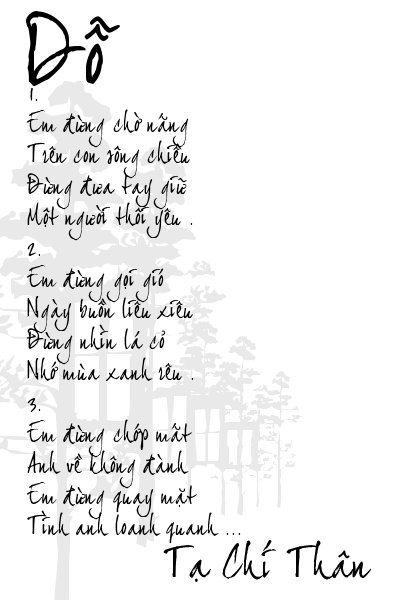 Dỗ
1.
Em đừng chờ nắng
Trên con sông chiều
Đừng đưa tay giữ
Một người thôi yêu .
2.
Em đừng gọi gió
Ngày buồn liêu xiêu
Đừng nhìn lá cỏ
Nhớ mùa xanh rêu .
3.
Em đừng chớp mắt
Anh về không đành
Em đừng quay mặt
Tình anh loanh quanh ...
Tạ Chí Thân